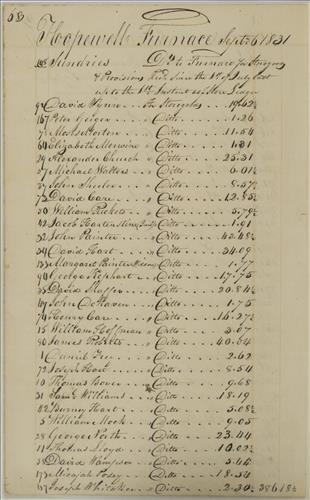 68
Hopewell Furnace Sept 6 1831
Sundries Drs to Furnace for Storegoods
& Provisions Rec'd Since the 1st of July last
up to the 1st Instant as Store Ledger
David Wynn for Storegoods 19.62½
167 Peter Geiger " Ditto 1.26
7 Moses Horton " Ditto 11.54
64 Elizabeth " Ditto 1.31
29 Alexander Church " Ditto 25.31
37 Michael Walters " Ditto 6.01½
John Sheeler " Ditto 8.57½
73 David Care " Ditto 12.85½
30 William Rickets " Ditto 3.79½
42 Jacob Harten " Ditto 1.91
32 John Painter " Ditto 43.48½
34 David Hart " Ditto 34.09
Margaret Painter " Ditto .77
40 George Kephart " Ditto 17.75
33 David " Ditto 20.84½
69 John DeHaven " Ditto 1.75
74 Henry Care " Ditto 16.27½
15 William Hoffman " Ditto 3.67
80 James Roberts " Ditto 40.64
1 Daniel " Ditto 2.62
72 Joseph Hart " Ditto 8.54
10 Thomas Bover " Ditto 9.68
31 Saml Williams " Ditto 18.19
42 Burney Hart " Ditto 3.08½
5 William Mock " Ditto 9.05
28 George North " Ditto 23.44
11 Thomas Lloyd " Ditto 10.02½
38 David Hampson " Ditto 3.44
17 Posey " Ditto 18.34
Joseph Whitacken " Ditto 2.30½ 386.18½